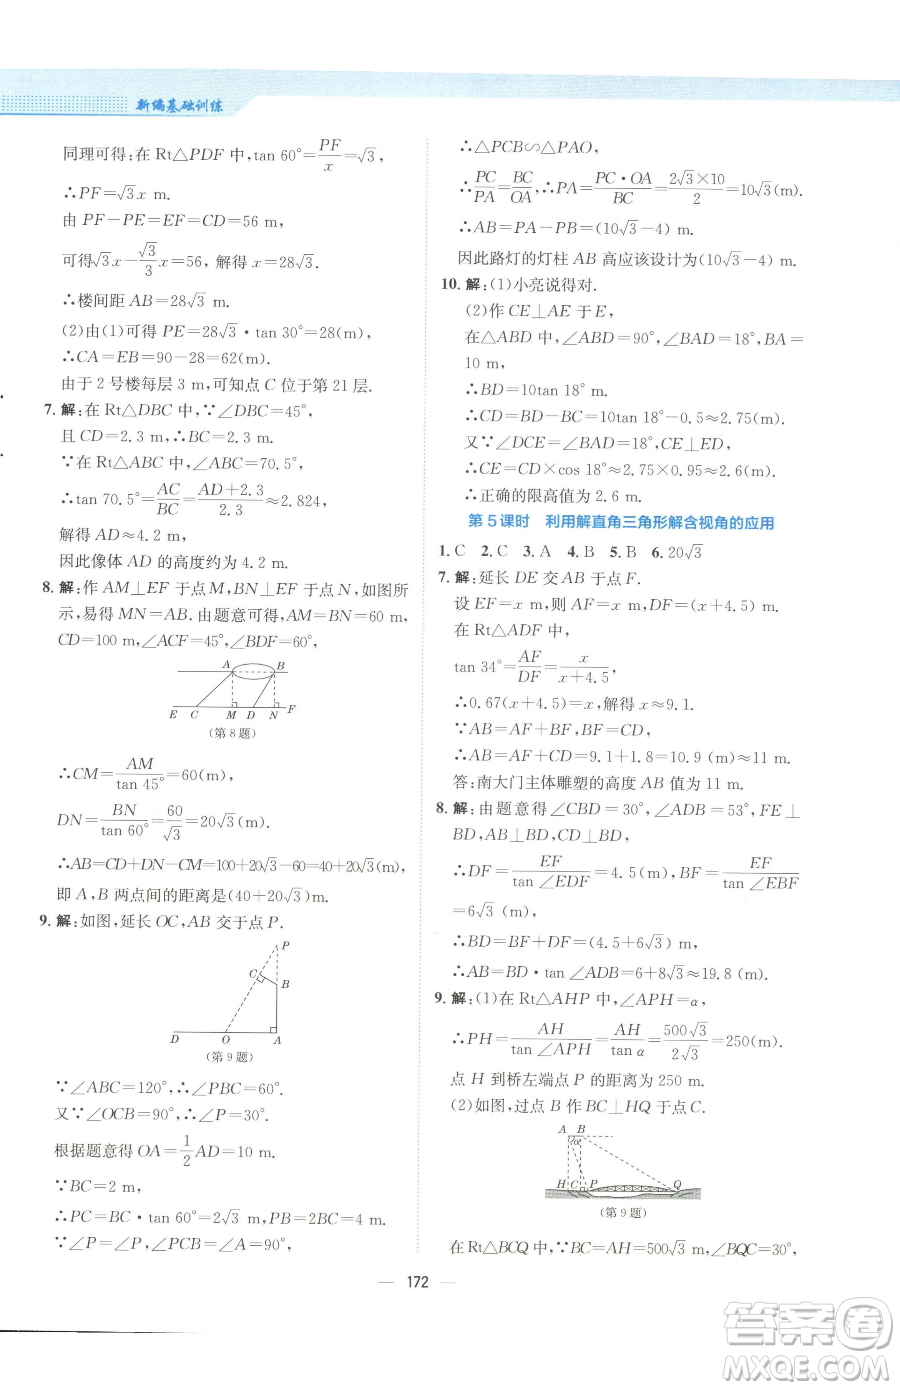 新编基础训练
同理可得:在 Rt△PDF 中,tan 60°=PF/x=√3,
∴PF=√3x m.
由 PF-PE=EF=CD=56 m,
可得√3x-√3/3x=56, 解得 x=28√3.
∴楼间距 AB=28√3 m.
(2)由(1)可得 PE=28√3·tan 30°=28(m),
∴CA=EB=90-28=62(m).
由于 2 号楼每层 3 m,可知点 C 位于第 21 层.
7. 解:在 Rt△DBC 中,∵∠DBC=45°,
且 CD=2.3 m,∴BC=2.3 m.
∵在 Rt△ABC 中,∠ABC=70.5°,
∴tan 70.5°=AC/BC=(AD+2.3)/2.3≈2.824,
解得 AD≈4.2 m.
因此像体 AD 的高度约为 4.2 m.
8. 解:作 AM⊥EF 于点 M,BN⊥EF 于点 N,如图所
示,易得 MN=AB. 由题意可得,AM=BN=60 m,
CD=100 m,∠ACF=45°,∠BDF=60°,
A B
E C M D N F
(第 8 题)
∴CM=AM/tan 45°=60(m),
DN=BN/tan 60°=60/√3=20√3(m).
∴AB=CD+DN-CM=100+20√3-60=40+20√3(m).
即 A,B 两点间的距离是(40+20√3)m.
9. 解:如图,延长 OC,AB 交于点 P.
P
C
B
D O A
(第 9 题)
∵∠ABC=120°,∴∠PBC=60°.
又∵∠OCB=90°,∴∠P=30°.
根据题意得 OA=1/2AD=10 m.
∵BC=2 m,
∴PC=BC·tan 60°=2√3 m,PB=2BC=4 m.
∵∠P=∠P,∠PCB=∠A=90°,
∴△PCB∽△PAO,
∴PC/PA=BC/OA,∴PA=PC·OA/BC=2√3×10/2=10√3(m).
∴AB=PA-PB=(10√3-4) m.
因此路灯的灯柱 AB 高应该设计为(10√3-4) m.
10. 解:(1)小亮说得对.
(2)作 CE⊥AE 于点 E,
在△ABD 中,∠ABD=90°,∠BAD=18°,BA=
10 m,
∴BD=10tan 18° m.
∴CD=BD-BC=10tan 18°-0.5≈2.75(m).
又∵∠DCE=∠BAD=18°,CE⊥ED,
∴CE=CD×cos 18°≈2.75×0.95≈2.6(m).
∴正确的限高值为 2.6 m.
第 5 课时 利用解直角三角形解含视角的应用
1. C 2. C 3. A 4. B 5. B 6. 20√3
7. 解:延长 DE 交 AB 于点 F.
设 EF=x m,则 AF=x m,DF=(x+4.5) m.
在 Rt△ADF 中,
tan 34°=AF/DF=x/(x+4.5),
∴0.67(x+4.5)=x. 解得 x≈9.1.
∵AB=AF+BF,BF=CD,
∴AB=AF+CD=9.1+1.8=10.9≈11 m.
答:南大门主体雕塑的高度 AB 值为 11 m.
8. 解:由题意得∠CBD=30°,∠ADB=53°,FE⊥
BD,AB⊥BD,
∴DF=EF/tan∠EDF=4.5(m),BF=EF/tan∠EBF
=6√3(m).
∴BD=BF+DF=(4.5+6√3)(m).
∴AB=BD·tan∠ADB=6+8√3≈19.8(m).
9. 解:(1)在 Rt△AHP 中,∠APH=α,
∴PH=AH/tan∠APH=AH/tan α=500√3/2√3=250(m).
点 H 到桥左端点 P 的距离为 250 m.
(2)如图,过点 B 作 BC⊥HQ 于点 C.
A B
α
H C P Q
(第 9 题)
在 Rt△BCQ 中,∵BC=AH=500√3 m,∠BQC=30°,
172
答案圈
MXQE.COM